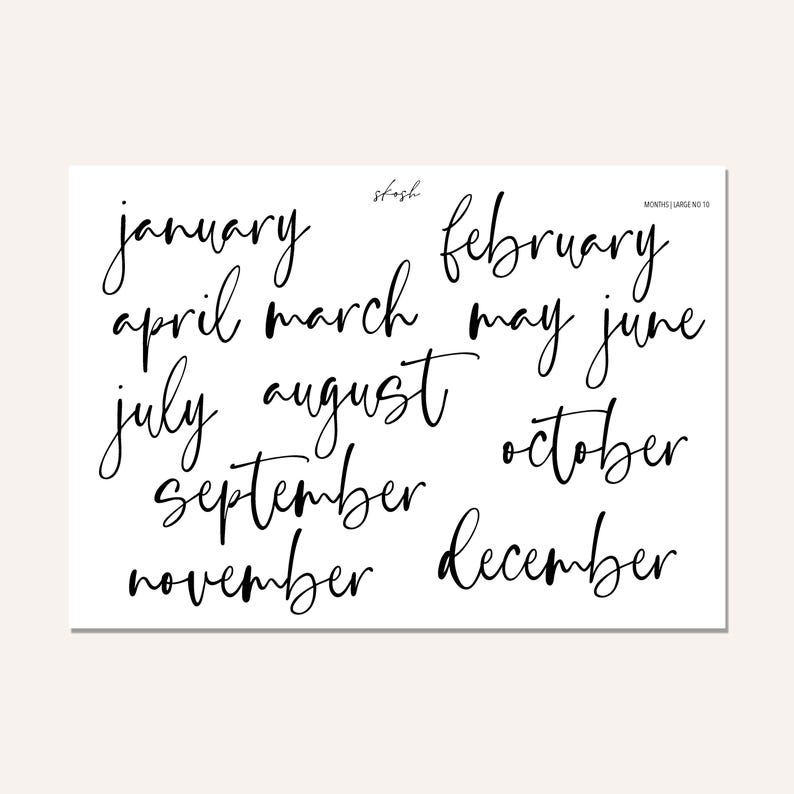 skosh
MONTHS | LARGE NO 10
january february
april march may june
july august
october
september
november december